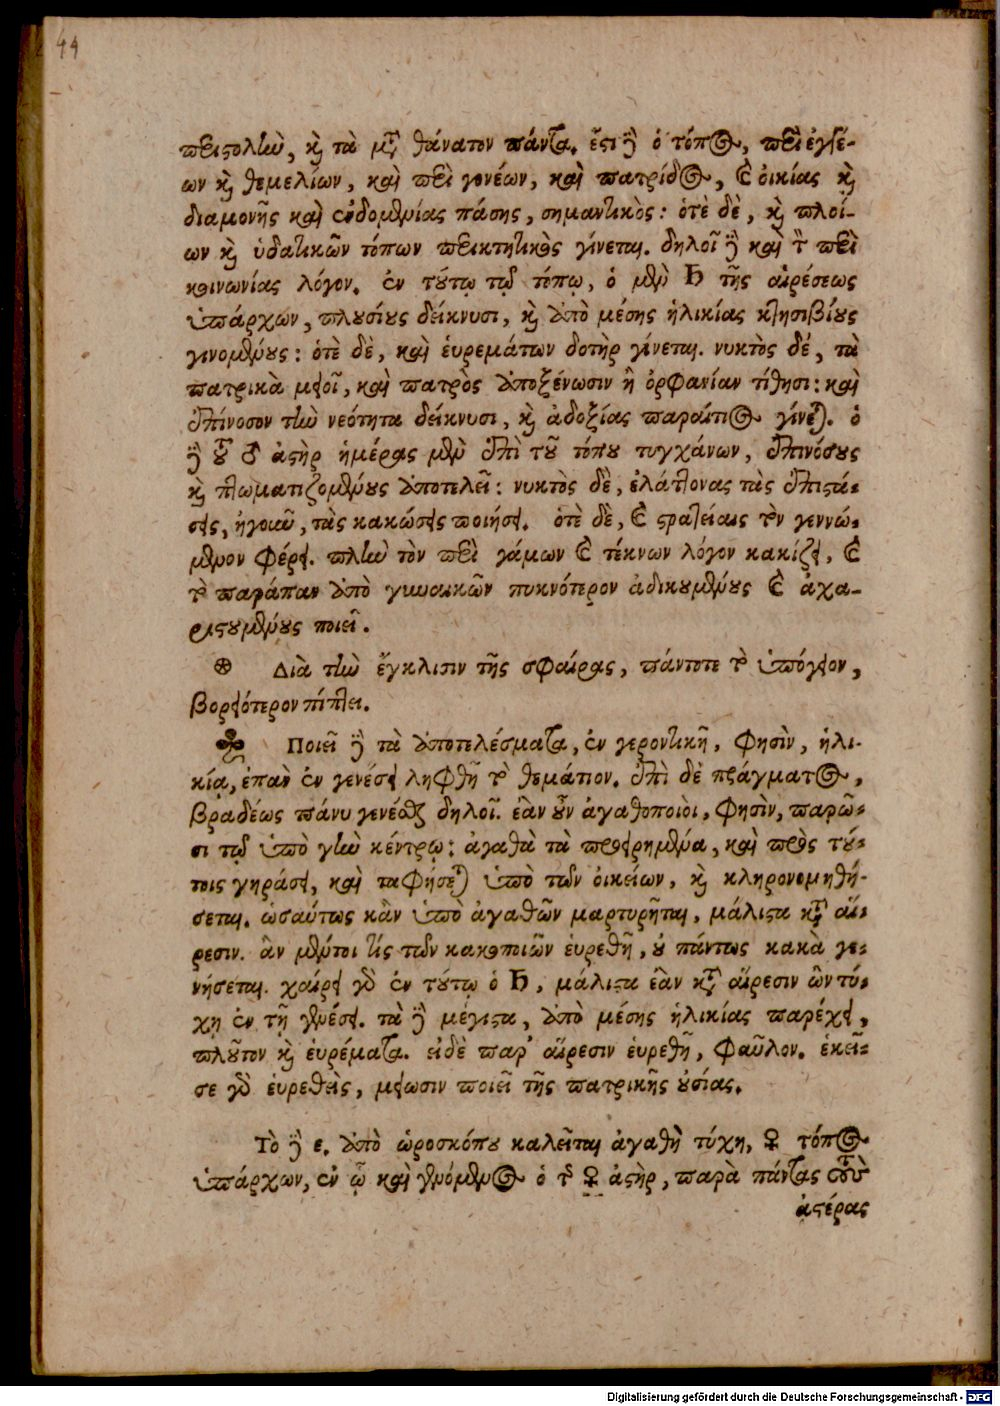 44
περιστολὴν, καὶ τὰ μετὰ θάνατον πάντα. ἔστι δὲ ὁ τόπος, περὶ ἐγγεί-
ων καὶ θεμελίων, καὶ περὶ γονέων, καὶ πατρίδος, καὶ οἰκίας καὶ
διαμονῆς καὶ ἐνδομενίας πάσης, σημαντικὸς: ὁτὲ δὲ, καὶ πλοί-
ων καὶ ὑδατικῶν τόπων περικτητικὸς γίνεται. δηλοῖ δὲ καὶ τὸν περὶ
κοινωνίας λόγον. ἐν τούτῳ τῷ τόπῳ, ὁ μὲν ♄ τῆς αἱρέσεως
ὑπάρχων, πλουσίους δείκνυσι, καὶ ἀπὸ μέσης ἡλικίας κτησιβίους
γινομένους: ὁτὲ δὲ, καὶ εὑρεμάτων δοτὴρ γίνεται. νυκτὸς δὲ, τὰ
πατρικὰ μειοῖ, καὶ πατρὸς ἀποξένωσιν ἢ ὀρφανίαν τίθησι: καὶ
ἐπίνοσον τὴν νεότητα δείκνυσι, καὶ ἀδοξίας παραίτιος γίνεται. ὁ
δὲ τοῦ ♂ ἀστὴρ ἡμέρας μὲν ἐπὶ τοῦ τόπου τυγχάνων, ἐπινόσους
καὶ πτωματιζομένους ἀποτελεῖ: νυκτὸς δὲ, ἐλάττονας τὰς ἐπιστά-
σεις, ἤγουν, τὰς κακώσεις ποιήσει. ὁτὲ δὲ, καὶ στρατείαις τὸν γεννώ-
μενον φέρει. πλὴν τὸν περὶ γάμων καὶ τέκνων λόγον κακίζει, καὶ
τὸ παράπαν ἀπὸ γυναικῶν πυκνότερον ἀδικουμένους καὶ ἀχα-
ριστουμένους ποιεῖ.
⊛ Διὰ τὴν ἔγκλισιν τῆς σφαίρας, πάντοτε τὸ ὑπόγειον,
βορειότερον πίπτει.
♣ Ποιεῖ δὲ τὰ ἀποτελέσματα, ἐν γεροντικῇ, φησὶν, ἡλι-
κίᾳ, ἐπὰν ἐν γενέσει ληφθῇ τὸ θεμάτιον. ἐπὶ δὲ πράγματος,
βραδέως πάνυ γενέσθαι δηλοῖ. ἐὰν οὖν ἀγαθοποιοὶ, φησὶν, παρῶ-
σι τῷ ὑπὸ γῆν κέντρῳ: ἀγαθὰ τὰ προειρημένα, καὶ πρὸς τού-
τοις γηράσει, καὶ ταφήσεται ὑπὸ τῶν οἰκείων, καὶ κληρονομηθή-
σεται. ὡσαύτως κἂν ὑπὸ ἀγαθῶν μαρτυρῆται, μάλιστα κατὰ αἵ-
ρεσιν. ἂν μέντοι τίς τῶν κακοποιῶν εὑρεθῇ, οὐ πάντως κακὰ γε-
νήσεται. χαίρει γὰρ ἐν τούτῳ ὁ ♄, μάλιστα ἐὰν κατὰ αἵρεσιν ὢν τύ-
χῃ ἐν τῇ γενέσει. τὰ δὲ μέγιστα, ἀπὸ μέσης ἡλικίας παρέχει,
πλοῦτον καὶ εὑρέματα. εἰ δὲ παρ' αἵρεσιν εὑρεθῇ, φαῦλον. ἐκεῖ-
σε γὰρ εὑρεθεὶς, μείωσιν ποιεῖ τῆς πατρικῆς οὐσίας.
Τὸ δὲ ε. ἀπὸ ὡροσκόπου καλεῖται ἀγαθὴ τύχη, ♀ τόπος
ὑπάρχων, ἐν ᾧ καὶ γενόμενος ὁ τῆς ♀ ἀστὴρ, παρὰ πάντας τοὺς
ἀστέρας
Digitalisierung gefördert durch die Deutsche Forschungsgemeinschaft - DFG